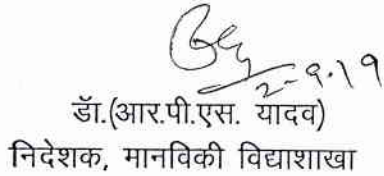 2-9-19
डॉ.(आर.पी.एस. यादव)
निदेशक, मानविकी विद्याशाखा